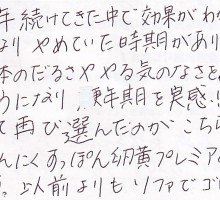 年続けてきた中で効果がわ
なり やめていた時期があり
体のだるさややる気のなさと
うになり、更年期を実感い
て再び選んだのがこちら
んにくすっぽん卵黄プレミア
。以前よりもソファでゴ